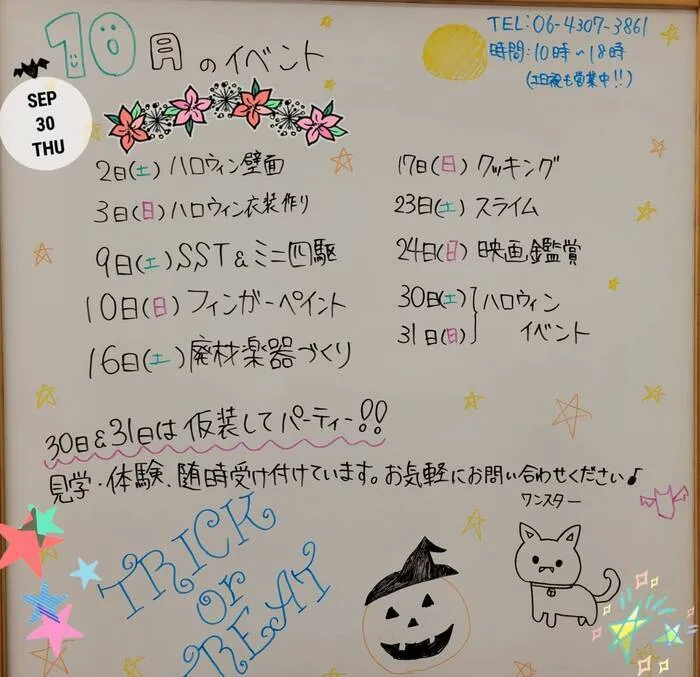 10月のイベント
TEL:06-4307-3861
時間:10時~18時
(土日祝も営業中!!)
SEP
30
THU
2日(土) ハロウィン壁面
3日(日) ハロウィン衣装作り
9日(土) SST&ミニ四駆
10日(日) フィンガーペイント
16日(土) 廃材楽器づくり
17日(日) クッキング
23日(土) スライム
24日(日) 映画鑑賞
30日(土)
31日(日)
ハロウィン
イベント
30日&31日は仮装してパーティー!!
見学・体験、随時受け付けています。お気軽にお問い合わせください♪
ワンスター
TRICK
or
TREAT